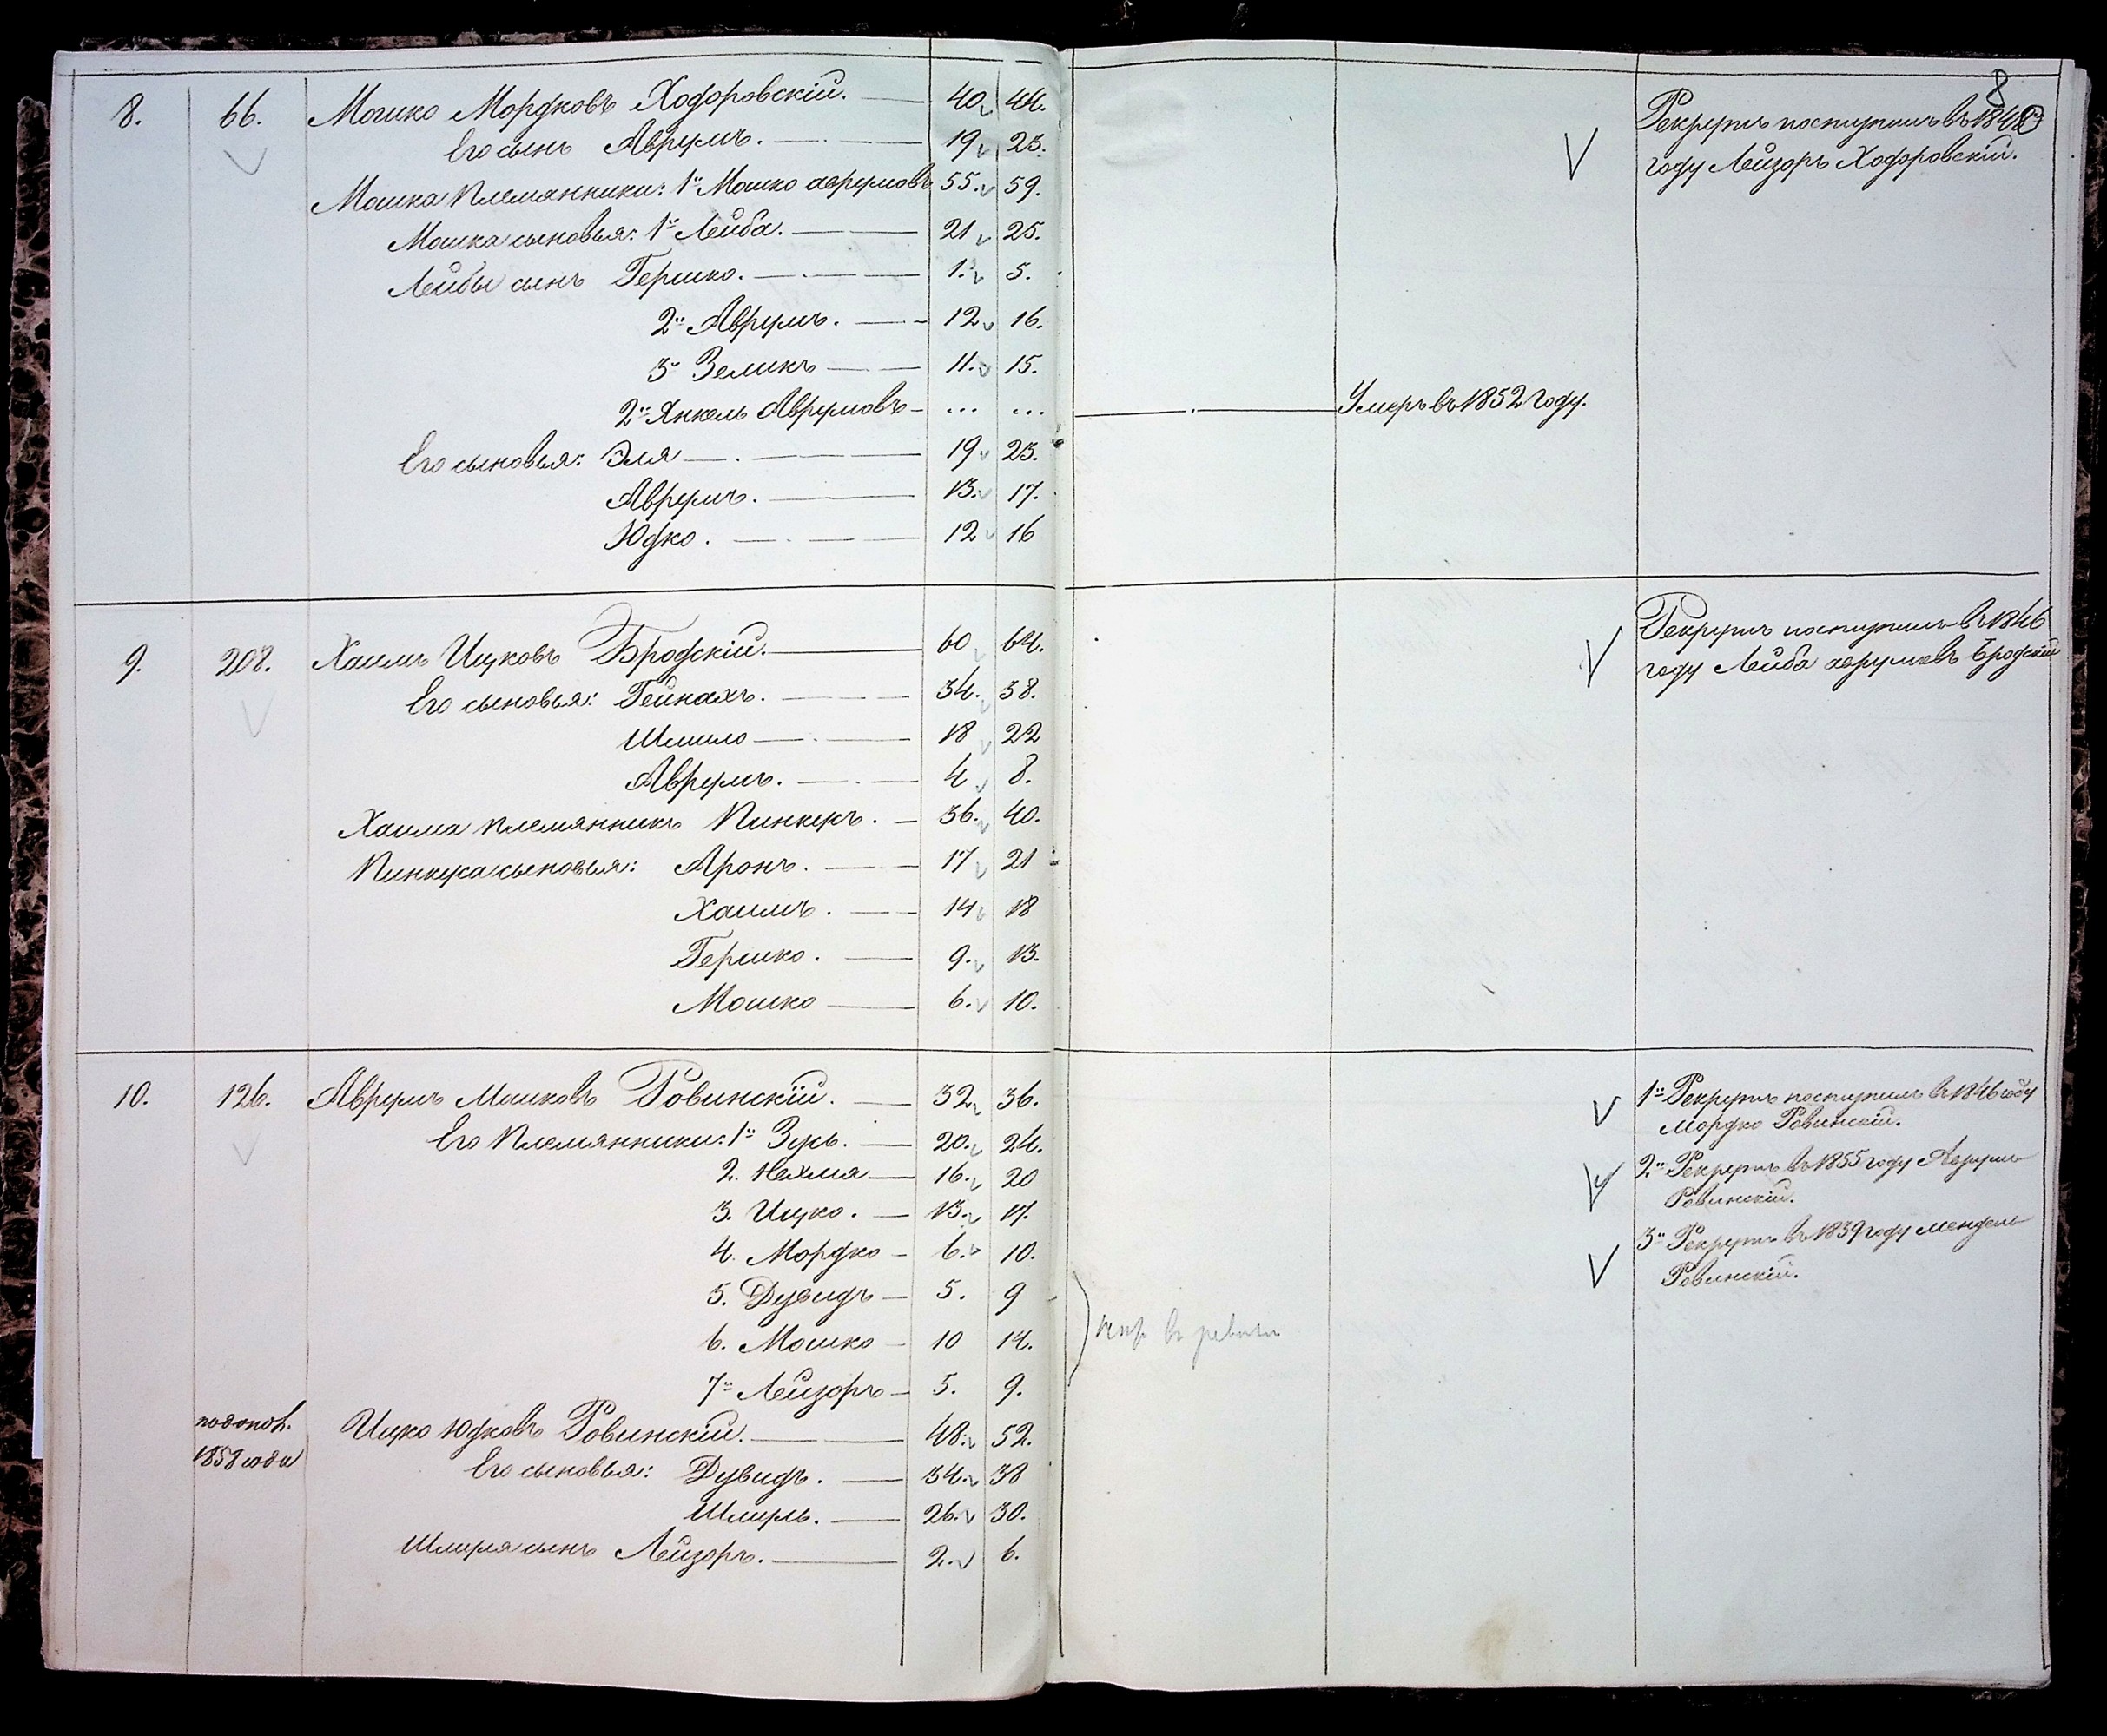 8
8. 66. Мошко Мордковъ Ходоровскій. 40 44. Рекрутъ поступилъ въ 1848
Его сынъ Аврумъ. 19 23. году Лейзоръ Ходоровскій.
Мошка племянники: 1й Мошко аврумовъ 55. 59.
Мошка сыновья: 1й Лейба. 21 25.
Лейбы сынъ Гершко. 1. 5.
2й Аврумъ. 12 16.
3й Зеликъ 11. 15.
2й Янкель Аврумовъ ... ... Умеръ въ 1852 году.
Его сыновья: Эля 19 23.
Аврумъ. 13. 17.
Юдко. 12 16
9. 208. Хаимъ Ицковъ Бродскій. 60 64. Рекрутъ поступилъ въ 1846
Его сыновья: Гейнахъ. 34. 38. году Лейба аврумовъ Бродскій
Шмило 18 22
Аврумъ. 4 8.
Хаима племянникъ Пинкусъ. 36. 40.
Пинкуса сыновья: Аронъ. 17 21
Хаимъ. 14 18
Гершко. 9. 13.
Мошко 6. 10.
10. 126. Аврумъ Мошковъ Ровинскій. 32 36. 1й Рекрутъ поступилъ въ 1846 году
Мордко Ровинскій.
Его племянники: 1й Зусь. 20. 24.
2. Нехмя 16. 20 2й Рекрутъ въ 1855 году Аврумъ
Ровинскій.
3. Ицко. 13. 17.
4. Мордко 6. 10. 3й Рекрутъ въ 1839 году Мендель
Ровинскій.
5. Дувидъ 5. 9
6. Мошко 10 14. въ ревизіи
7й Лейзоръ 5. 9.
1858 года Ицко Юдковъ Ровинскій. 48. 52.
Его сыновья: Дувидъ. 34. 38
Шмуль. 26. 30.
Шмуля сынъ Лейзоръ. 2. 6.